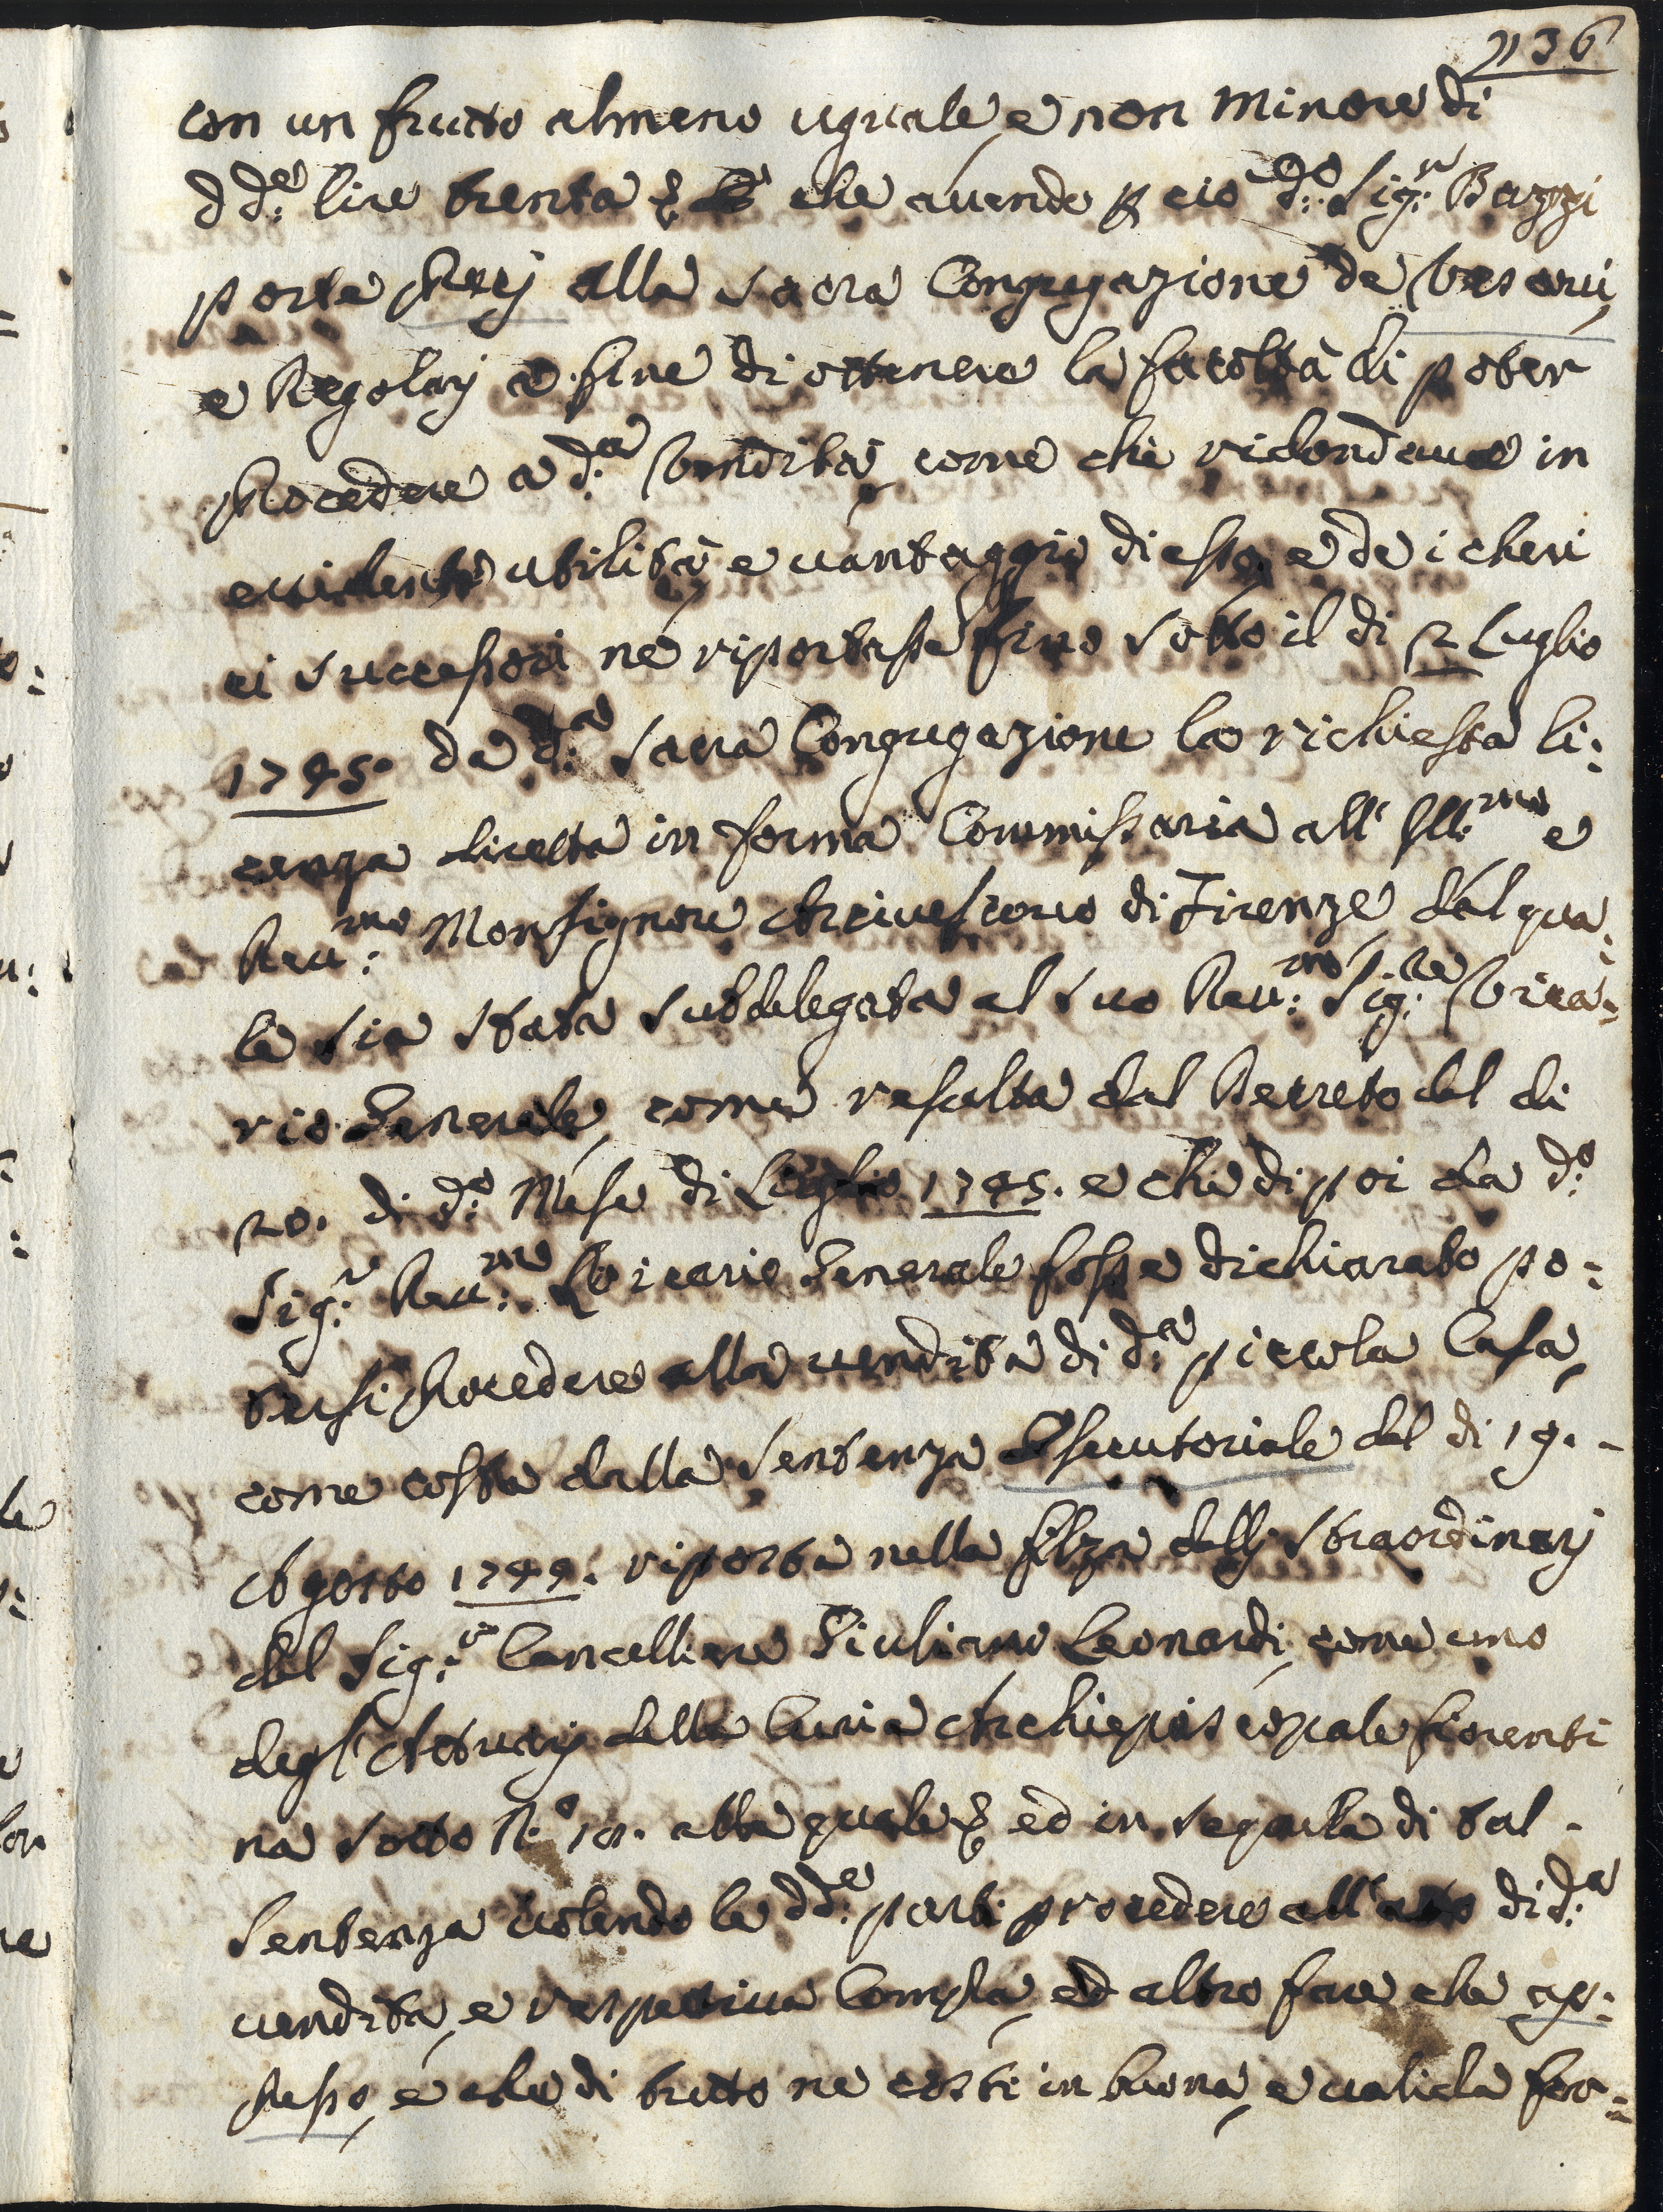 136
con un frutto almeno uguale, e non minore di
dd:e lire trenta che avendo p cio d:o Sig:r Bazzi
porte Preci alla Sacra Congregazione de Vescovi,
e Regolarj a fine di ottenere la facoltà di poter
Procedere a d:a Vendita, come che ridondava in
evidente utilità, e vantaggio di esso, e de i
ei successori ne riportasse fino sotto il di 2 Luglio
1745. da d:a Sacra Congregazione la richiesta li:
cenza diretta in forma Commissaria all' Ill:mo e
Rev:mo Monsignore Arcivescovo di Firenze, dal qua:
le sia stata Subdelegata al suo Rev:mo Sig:re Vica:
rio Generale, come resulta dal Decreto del di
20. di d:o Mese di Luglio 1745. e che di poi da d:o
Sig:r Rev:mo Vicario Generale fosse dichiarato po:
tersi Procedere alla vendita di d:a piccola Casa,
come costa dalla Sentenza Esecutoriale del di 19. -
Agosto 1749. riposta nella filza delli Straordinarj
del Sig:r Cancelliere Giuliano Leonardi, come uno
degl' Attuarj della Curia Archiepiscopale fiorenti
na sotto N.o alla quale ed in seguela di tal -
Sentenza volendo le dd:e parti procedere all' atto di d:a
vendita, e respettiva Compra, ed altro fare che ap:
presso, e che di tutto ne costi in buona, e valida for: